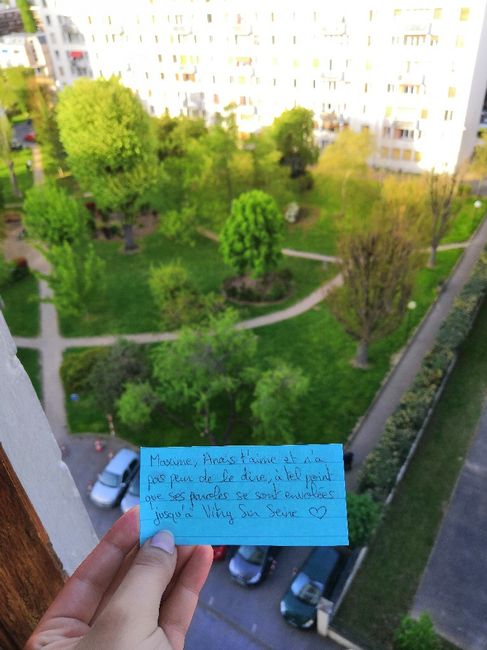 Maxime, Anaïs t'aime et n'a
pas peur de le dire, à tel point
que ses paroles se sont envolées
jusqu'à Vitry Sur Seine ♡